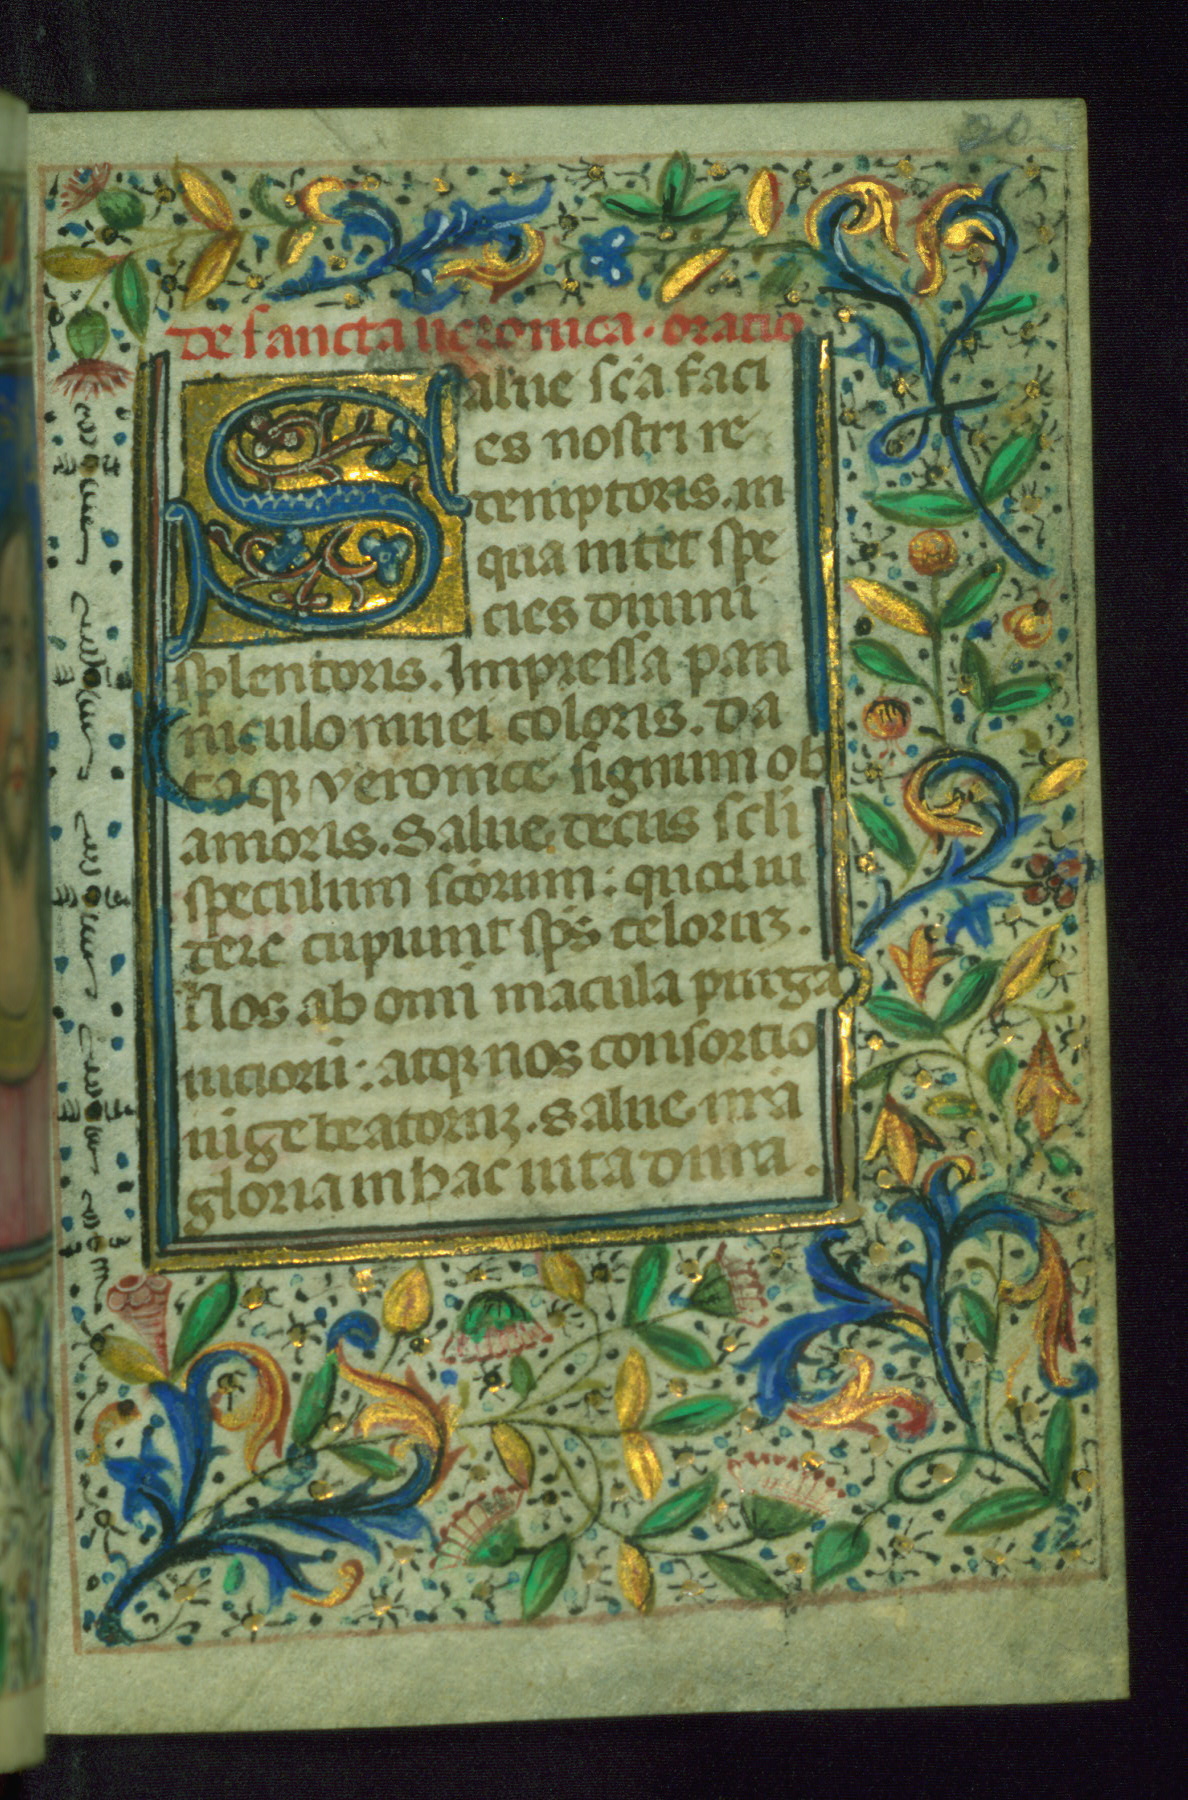 20
De sancta ueronica. oratio
Salue sc̄a faci
es nostri re
demptoris. in
qua nitet spe
cies diuini
splendoris. Impressa pan
niculo niuei coloris. da
taqꝫ veronice signum ob
amoris. Salue. decus scl̄i
speculum sc̄orum: quod ui
dere cupiunt sp̄s celoruꝫ.
Nos ab om̄i macula purga
uiciorū: atqꝫ nos consortio
iuige beatoruꝫ. Salue nr̄a
gloria in hac uita dura.